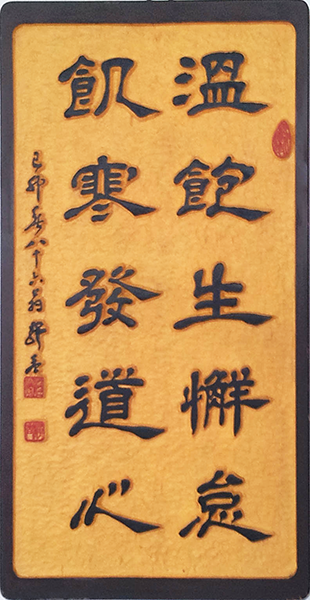 溫飽生懈怠
飢寒發道心
己卯春八十六翁